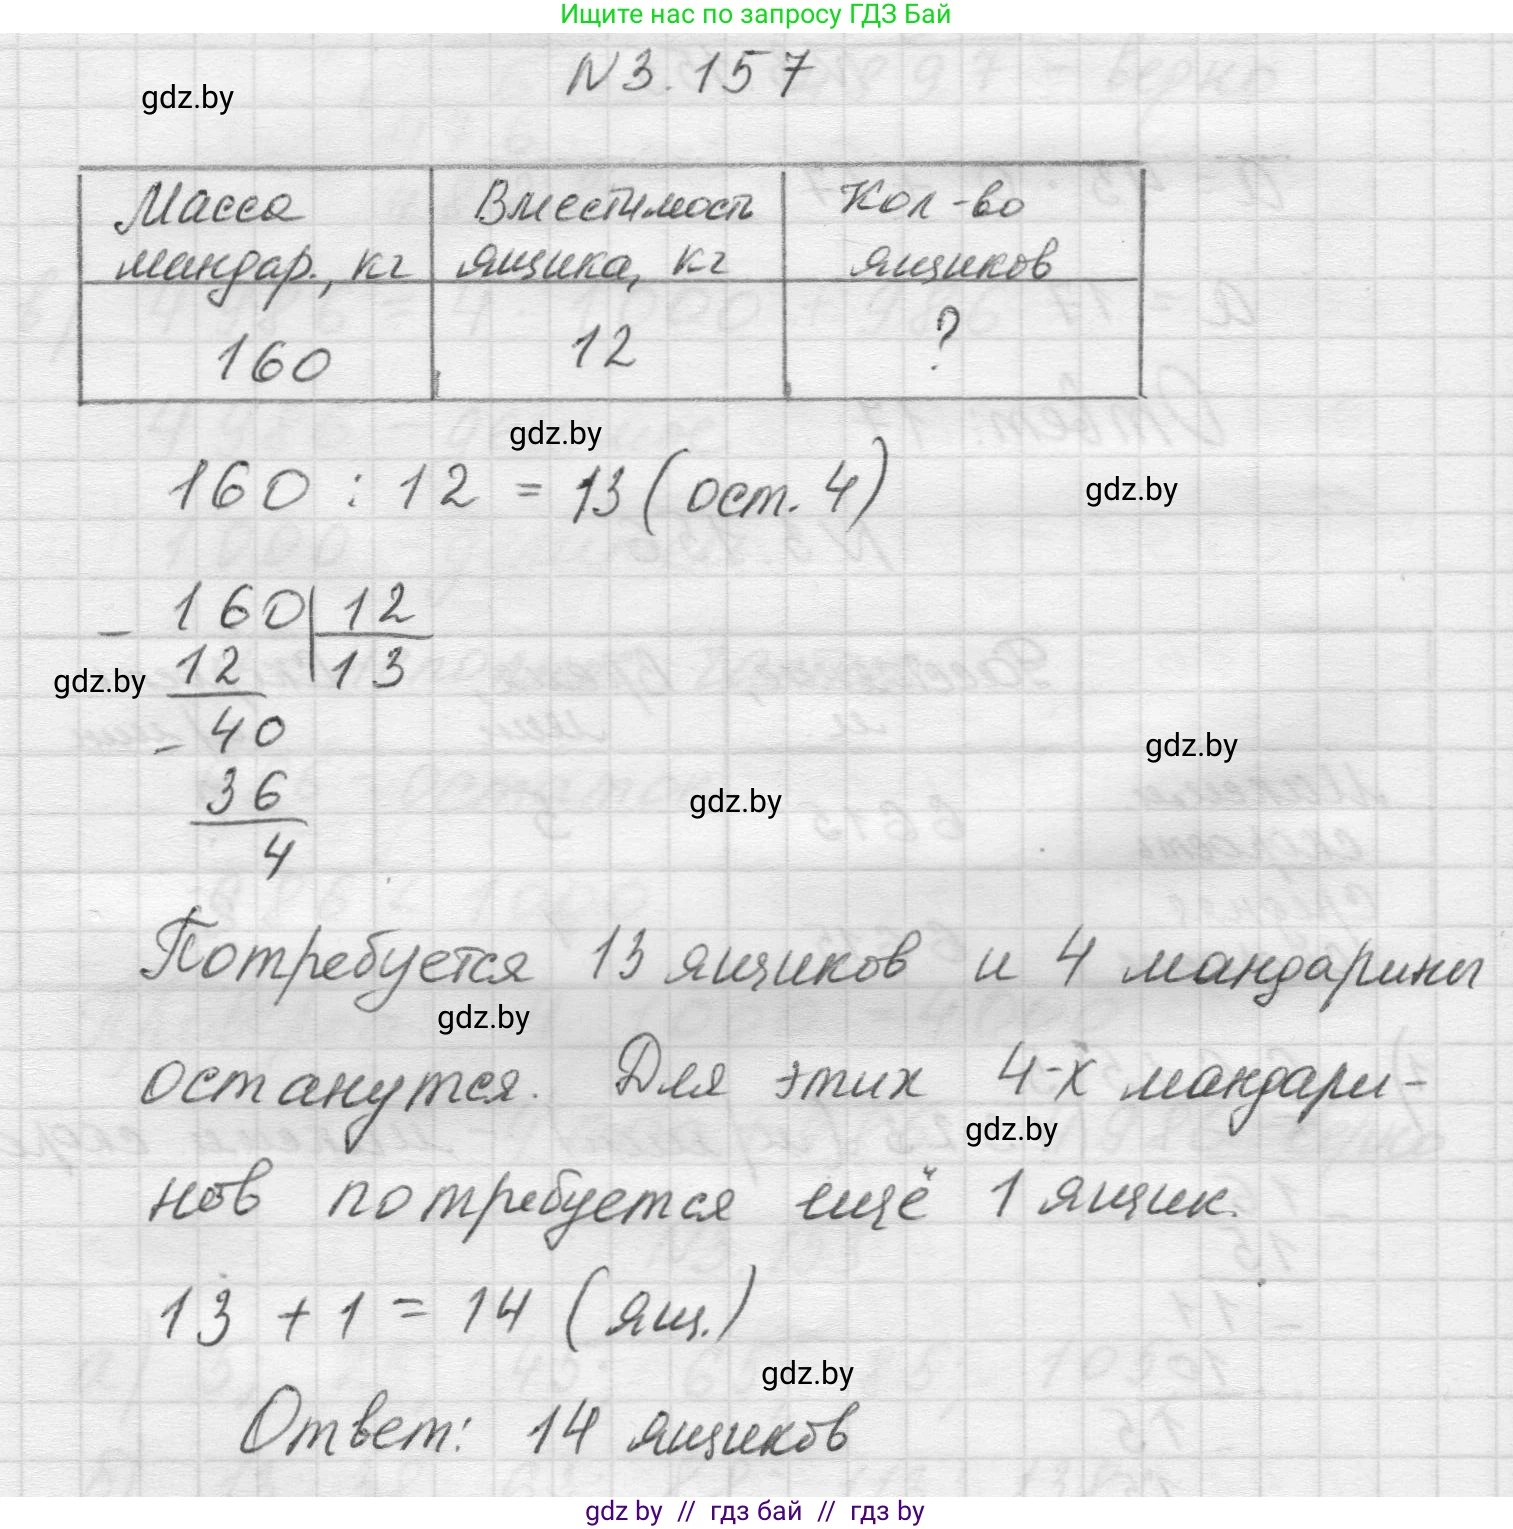 Ищите нас по запросу ГДЗ Бай
N3.157
gdz.by
Масса Вместимость Кол-во
мандар., кг ящика, кг ящиков
160 12 ?
gdz.by
160 : 12 = 13 (ост. 4)
gdz.by
- 160 12
12 13
gdz.by
- 40
gdz.by
36
gdz.by
4
Потребуется 13 ящиков и 4 мандарины
gdz.by
останутся. Для этих 4-х мандари-
gdz.by
нов потребуется ещё 1 ящик.
13 + 1 = 14 (ящ.)
gdz.by
Ответ: 14 ящиков
gdz by // гдз бай // гдз by